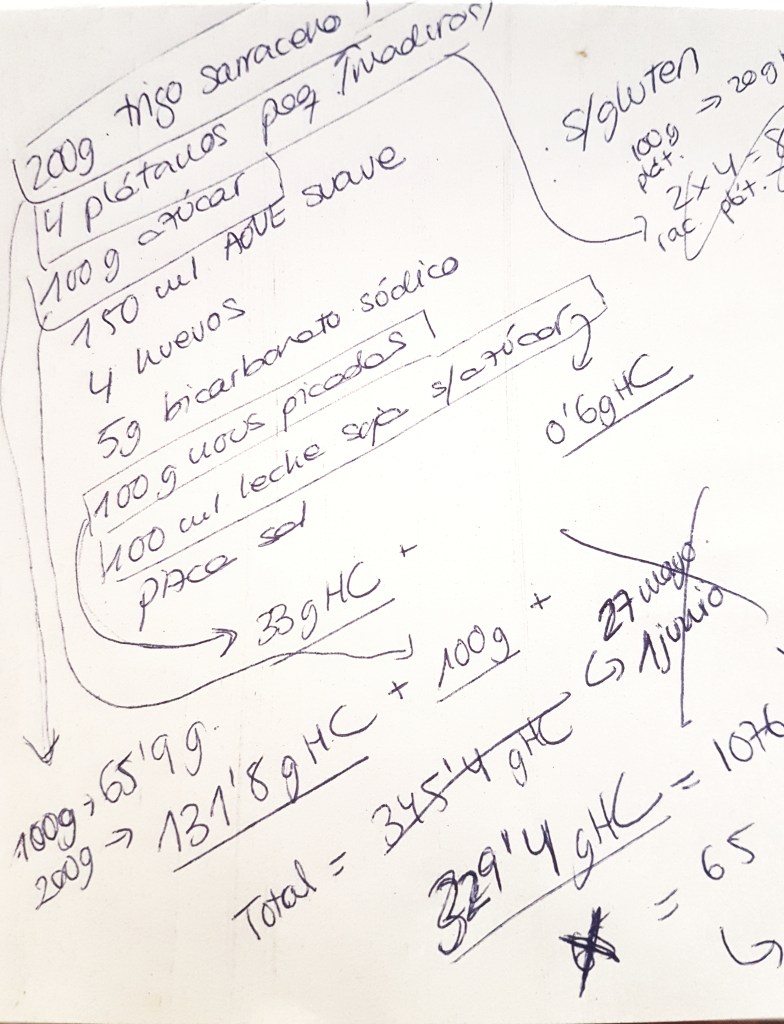 200g trigo sarraceno
4 plátanos peq (maduros)
100g azúcar
150 ml AOVE suave
4 huevos
5g bicarbonato sódico
100g nous picadas
100 ml leche soja s/azúcar
pizca sal
0'6gHC
s/gluten
100g plát. → 20g
2 x 4 = 8
rac. plát.
33gHC +
+ 100g +
100g → 65'9g.
200g → 131'8gHC
27 mayo
1 junio
Total = 345'4 gHC
329'4 gHC = 1076
= 65